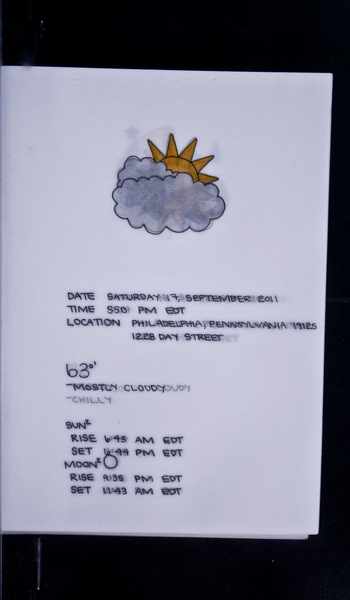 DATE SATURDAY 17, SEPTEMBER 2011
TIME 550 PM EDT
LOCATION PHILADELPHIA, PENNSYLVANIA 19125
1228 DAY STREET
63°
-MOSTLY CLOUDY
-CHILLY
SUN²
RISE 6:45 AM EDT
SET PM EDT
MOON²
RISE 9:35 PM EDT
SET 11:43 AM EDT